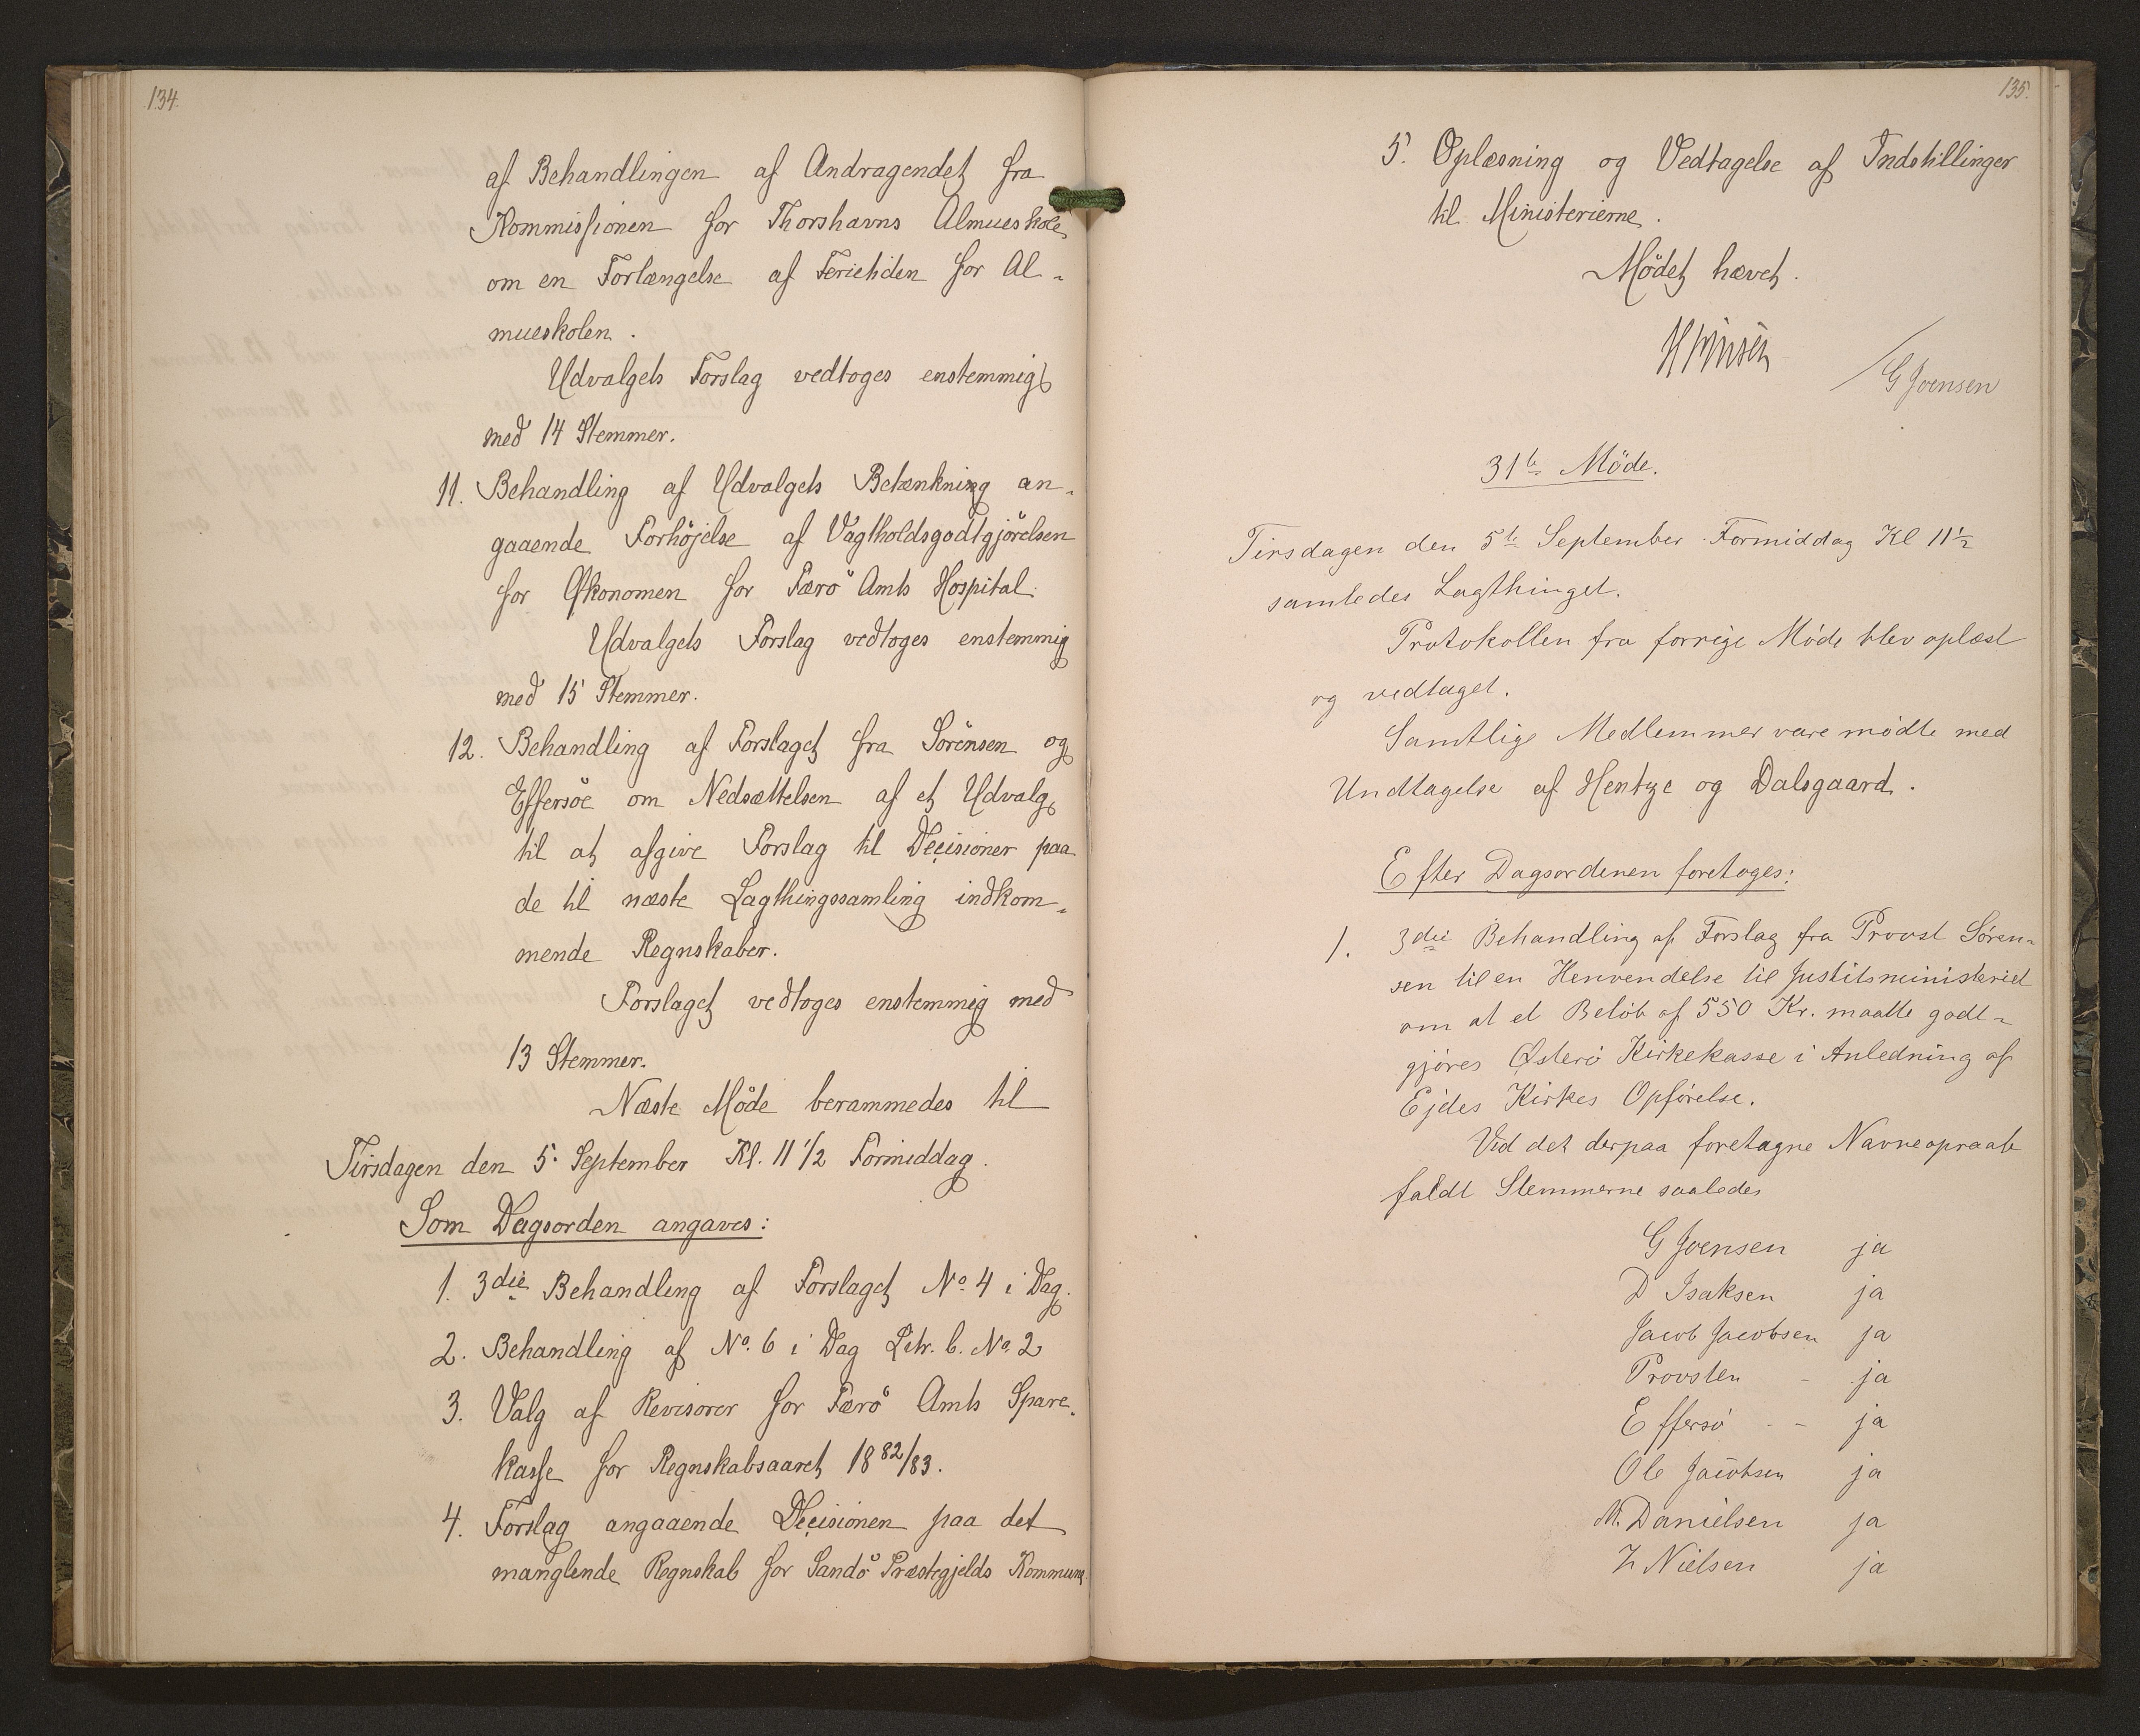 134.
af Behandlingen af Andragendet fra
Kommissionen for Thorshavns Almueskole
om en Forlængelse af Ferietiden for Al-
mueskolen.
Udvalgets Forslag vedtoges enstemmigt
med 14 Stemmer.
11. Behandling af Udvalgets Betænkning an-
gaaende Forhöjelse af Vagtholdsgodtgjörelsen
for Økonomen for Færö Amts Hospital.
Udvalgets Forslag vedtoges enstemmig
med 15 Stemmer.
12. Behandling af Forslaget fra Sörensen og
Effersöe om Nedsættelsen af et Udvalg
til at afgive Forslag til Decisioner paa
de til næste Lagthingssamling indkom-
mende Regnskaber.
Forslaget vedtoges enstemmig med
13 Stemmer.
Næste Möde berammedes til
Tirsdagen den 5. September Kl. 11 1/2 Formiddag.
Som Dagsorden angaves:
1. 3die Behandling af Forslaget No. 4 i Dag.
2. Behandling af No. 6 i Dag Litr. b. No. 2
3. Valg af Revisorer for Færö Amts Spare-
kasse for Regnskabsaaret 1882/83.
4. Forslag angaaende Decisionen paa det
manglende Regnskab for Sandö Præstegjelds Kommune
135.
5. Oplæsning og Vedtagelse af Indstillinger
til Ministerierne.
Mödet hævet.
/ G Joensen
31te Möde.
Tirsdagen den 5te September Formiddag Kl 11½
samledes Lagthinget.
Protokollen fra forrige Möde blev oplæst
og vedtaget.
Samtlige Medlemmer vare mödte med
Undtagelse af Hentze og Dalsgaard.
Efter Dagsordenen foretoges:
1. 3die Behandling af Forslag fra Provst Sören-
sen til en Henvendelse til Justitsministeriet
om at et Belöb af 550 Kr. maatte godt-
gjöres Østerö Kirkekasse i Anledning af
Ejdes Kirkes Opförelse.
Ved det derpaa foretagne Navneopraab
faldt Stemmerne saaledes
G Joensen ja
D Isaksen ja
Jacob Jacobsen ja
Provsten - ja
Effersö - - ja
Ole Jacobsen ja
M. Danielsen ja
Z Nielsen ja